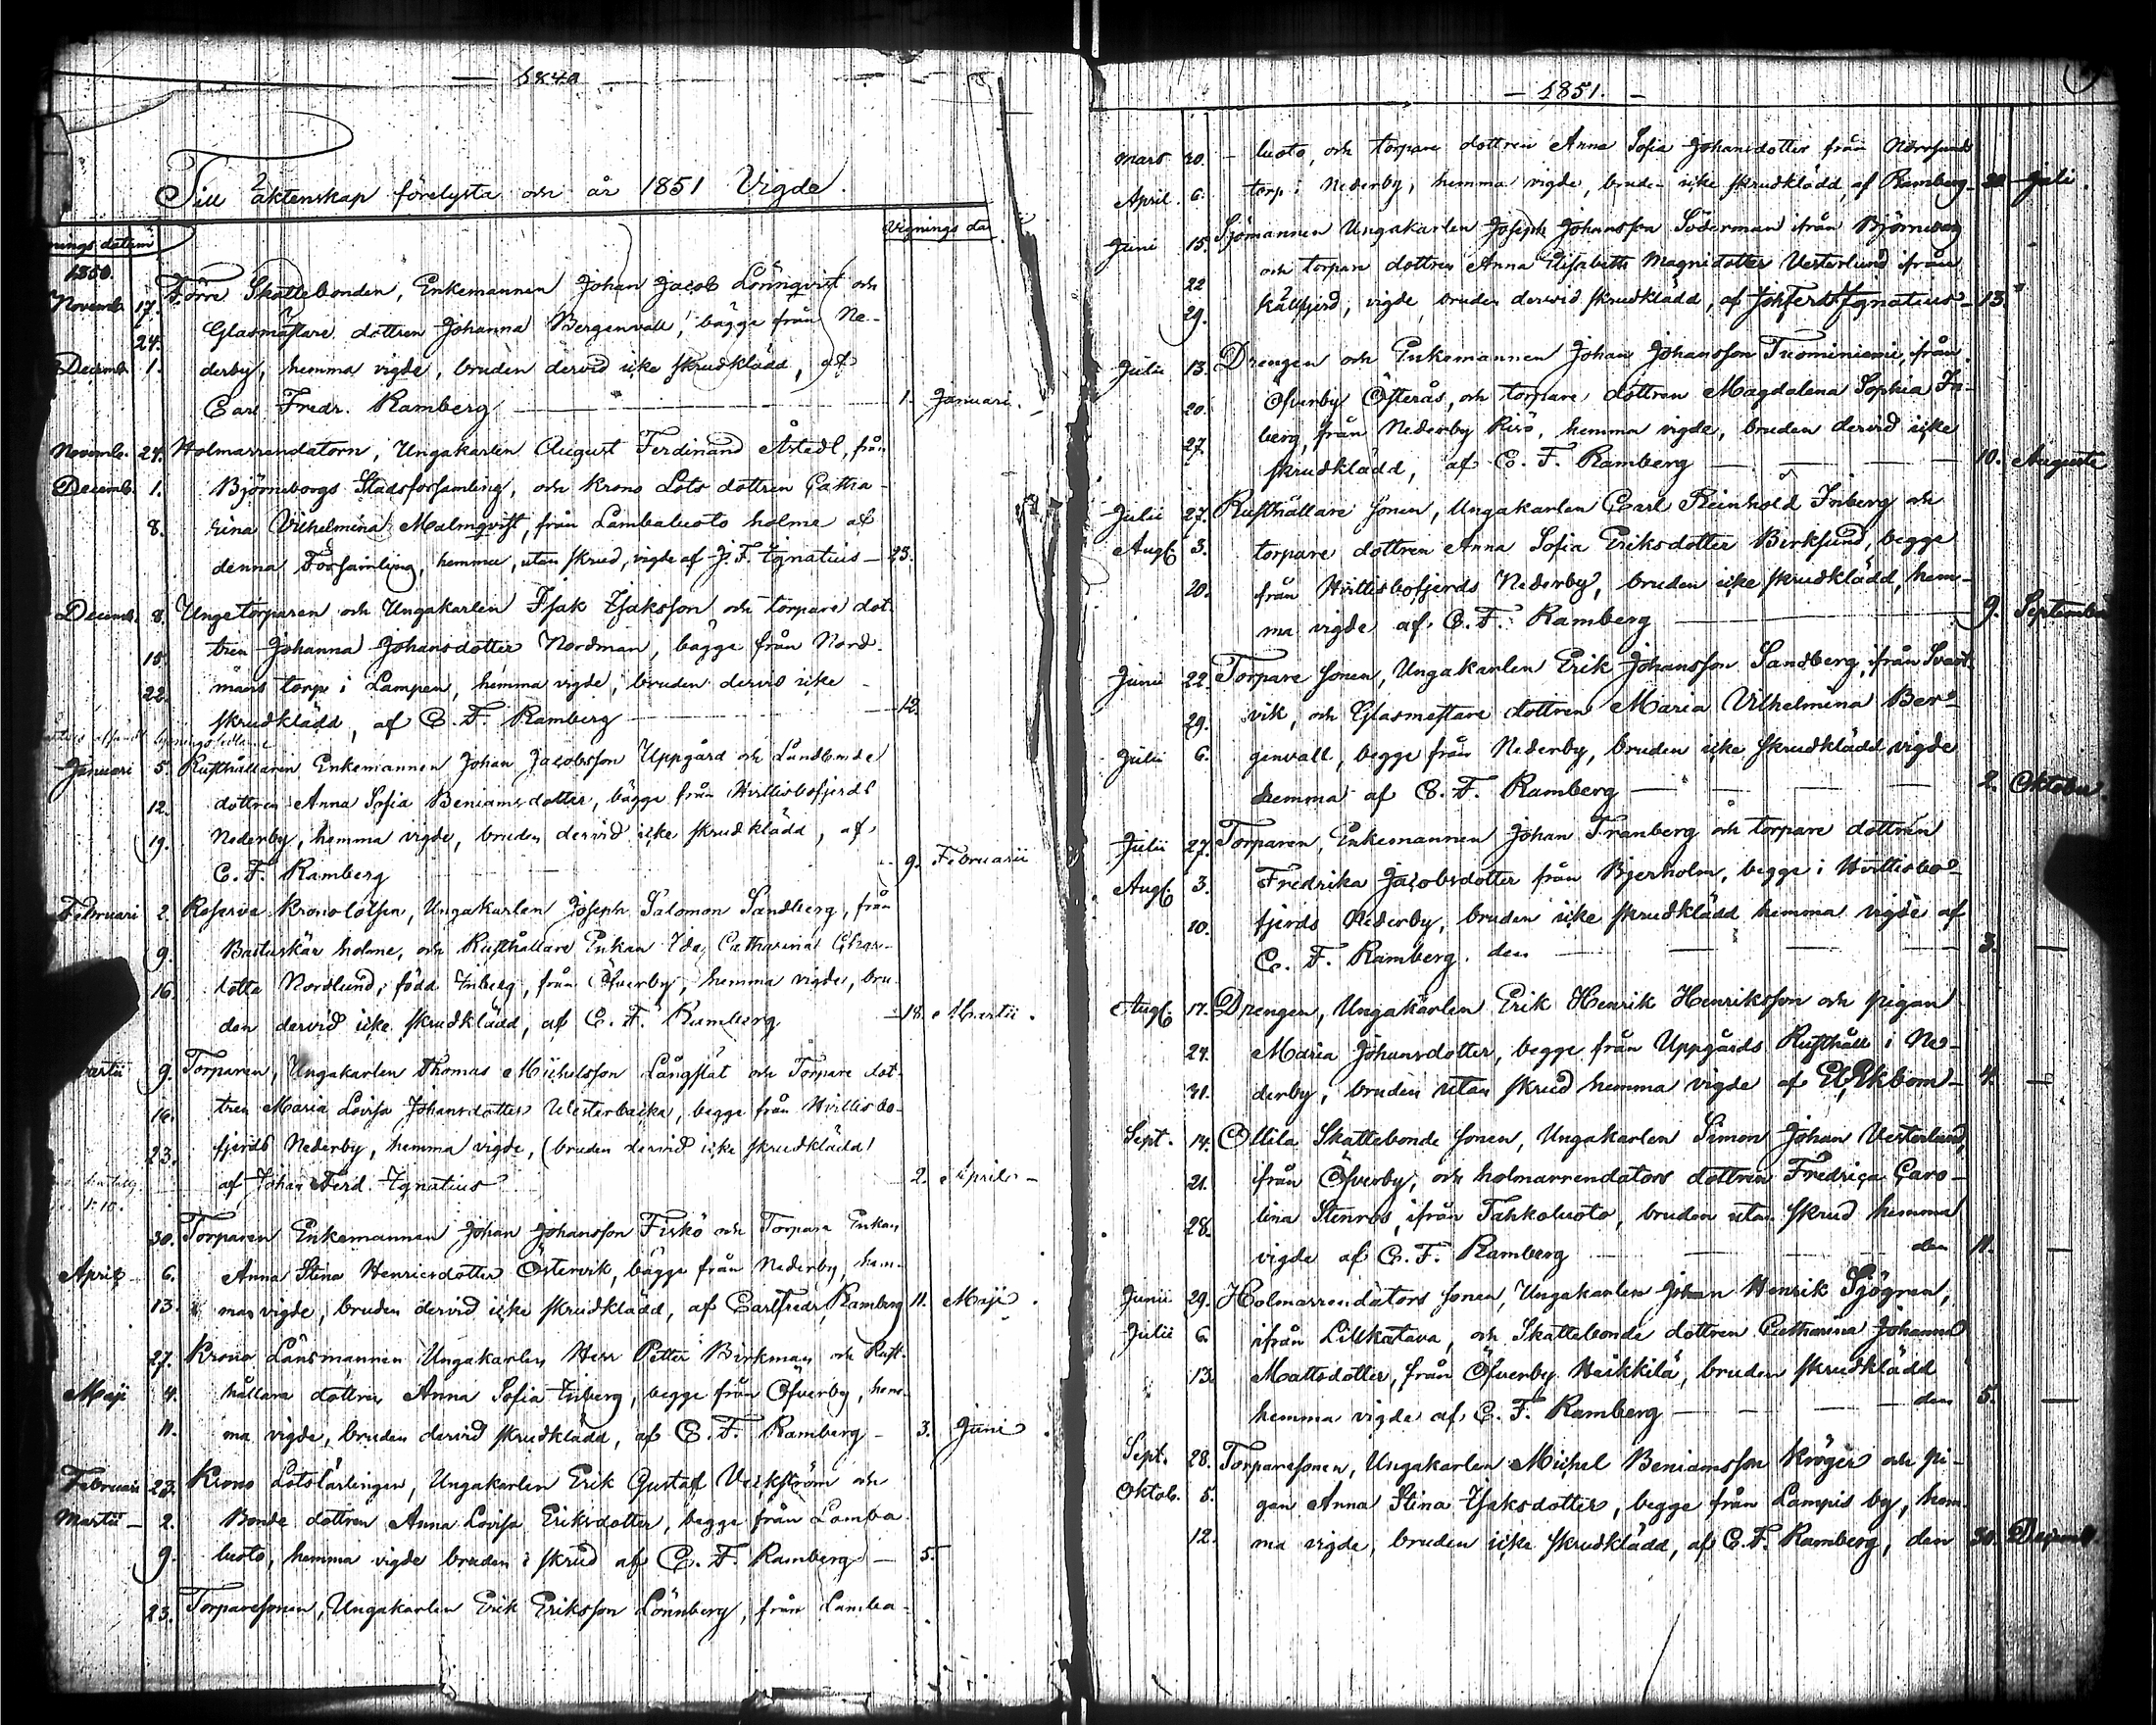 1840
Till äktenskap förelysta och år 1851 Vigde.
nings datum
Vignings da
1850.
Novemb. 17. Förre Skattebonden, Enkemannen Johan Jacob Lönnqvist och
24. Glasmästare dottren Johanna Bergenvall, bägge från Ne-
Decemb. 1. derby, hemma vigde, bruden dervid icke skrudklädd, af
Carl Fredr. Ramberg 1. Januari.
Novemb. 24. Holmarrendatorn, Ungakarlen August Ferdinand Åstedt, från
Decemb. 1. Björneborgs Stadsförsamling, och Krono Lots dottren Catha-
8. rina Vilhelmina Malmqvist, från Lambaluoto holme af
denna Församling, hemma, utan skrud, vigde af J. F. Ignatius 23.
Decemb. 8. Unge torparen och Ungakarlen Isak Isaksson och torpare dot-
15. tren Johanna Johansdotter Nordman, bägge från Nord-
22. mans torp i Lampen, hemma vigde, bruden dervid icke
skrudklädd, af C. F. Ramberg 12.
Januari 5. Rusthållaren Enkemannen Johan Jacobsson Uppgård och Landbonde
12. dottren Anna Sofia Beniamsdotter, bägge från Hvittisbofjerds
19. Nederby, hemma vigde, bruden dervid icke skrudklädd, af
C. F. Ramberg 9. Februarii
Februari 2. Reserve kronolotsen, Ungakarlen Joseph Salomon Sandberg, från
9. Bastuskär holme, och Rusthållare Enkan Ida Catharina Char-
16. lotta Nordlund, född Inberg, från Öfverby, hemma vigde, bru-
den dervid icke skrudklädd, af C. F. Ramberg 18. Martii.
artii 9. Torparen, Ungakarlen Thomas Michelsson Långslät och Torpare dot-
16. tren Maria Lovisa Johansdotter Westerbacka, begge från Hvittisbo-
23. fjerds Nederby, hemma vigde, (bruden dervid icke skrudklädd)
af Johan Ferd. Ignatius 2. April
30. Torparen Enkemannen Johan Johansson Fiskö och Torpare Enkan
April 6. Anna Stina Henricsdotter Östervik, bägge från Nederby, hem-
13. ma vigde, bruden dervid icke skrudklädd, af Carl Fredr. Ramberg 11. Maji.
27. Krono Länsmannen Ungakarlen Herr Petter Birkman och Rust-
Maji 4. hållare dottren Anna Sofia Inberg, begge från Öfverby, hem-
11. ma vigde, bruden dervid skrudklädd, af C. F. Ramberg 3. Juni.
Februari 23. Krono Lotslärlingen, Ungakarlen Erik Gustaf Veckström och
Martii 2. Bonde dottren Anna Lovisa Eriksdotter, begge från Lamba-
9. luoto, hemma vigde bruden i skrud af C. F. Ramberg 5.
23. Torparesonen, Ungakarlen Erik Eriksson Lönnberg, från Lamba-
1851.
Mars 30. luoto, och torpare dottren Anna Sofia Johansdotter från Norrsunds
April 6. torp i Nederby, hemma vigde, bruden icke skrudklädd, af Ramberg 20 Juli.
Juni 15. Sjömannen Ungakarlen Joseph Johansson Söderman ifrån Björneborg
22 och torpare dottren Anna Elisabeth Magnidotter Vesterlund ifrån
29. Källfjerd, vigde, bruden dervid skrudklädd, af Joh Ferd Ignatius 13.
Julii 13. Drengen och Enkemannen Johan Johansson Tuominiemi, från
20. Öfverby Österås, och torpare dottren Magdalena Sophia In-
27. berg, från Nederby Risö, hemma vigde, bruden dervid icke
skrudklädd, af C. F. Ramberg 10. Augusti
Julii 27. Rusthållare sonen, Ungakarlen Carl Reinhold Inberg och
Aug. 3. torpare dottren Anna Sofia Eriksdotter Birksund, begge
20. från Hvittisbofjerds Nederby, bruden icke skrudklädd, hem-
ma vigde af C. F. Ramberg 9. September
Junii 22. Torpare sonen, Ungakarlen Erik Johansson Sandberg, från Svart-
29. vik, och Glasmästare dottren Maria Vilhelmina Ber-
Julii 6. genvall, begge från Nederby, bruden icke skrudklädd vigde
hemma af C. F. Ramberg 2. Oktober.
Julii 27. Torparen, Enkemannen Johan Franberg och torpare dottren
Aug. 3. Fredrika Jacobsdotter från Bjerholm, begge i Hvittisbo-
10. fjerds Nederby, bruden icke skrudklädd hemma vigde af
C. F. Ramberg den 3. —
Aug. 17. Drengen, Ungakarlen Erik Henrik Henriksson och pigan
24. Maria Johansdotter, begge från Uppgårds Rusthåll i Ne-
31. derby, bruden utan skrud hemma vigde af Ekbom 4. —
Sept. 14. Ollila Skattebonde sonen, Ungakarlen Simon Johan Vesterlund,
21. ifrån Öfverby, och holmarrendators dottren Fredrica Caro-
28. lina Stenros, ifrån Tahkoluoto, bruden utan skrud hemma
vigde af C. F. Ramberg den 11. —
Junii 29. Holmarrendators sonen, Ungakarlen Johan Henrik Sjögren,
Julii 6. ifrån Lillkatava, och Skattebonde dottren Catharina Johanna
13. Mattsdotter, från Öfverby Heikkilä, bruden skrudklädd
hemma vigde af C. F. Ramberg den 5. —
Sept. 28. Torparesonen, Ungakarlen Michel Beniamsson Kröger och pi-
Oktob. 5. gan Anna Stina Isaksdotter, begge från Lampis by, hem-
12. ma vigde, bruden icke skrudklädd, af C. F. Ramberg, den 30. Decemb